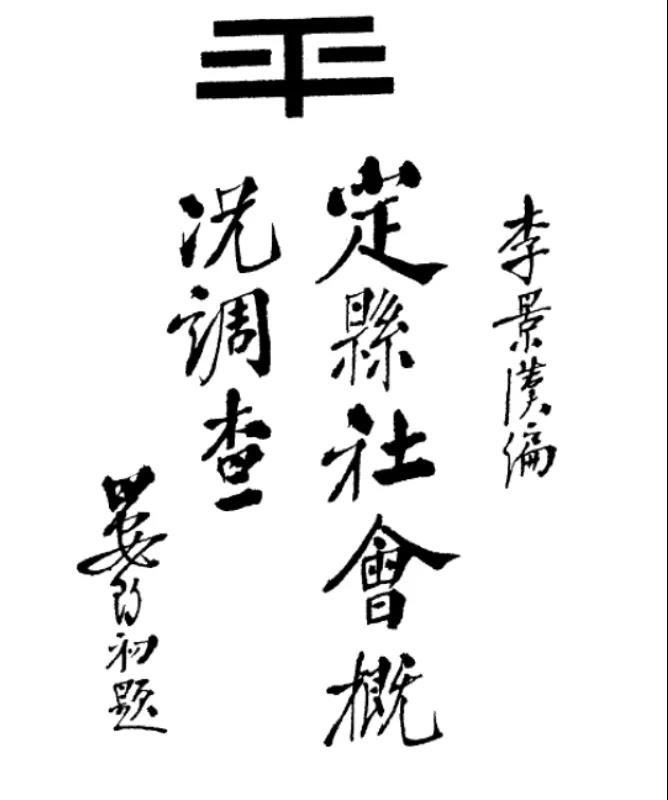 李景漢編
定縣社會概
況調查
晏陽初題